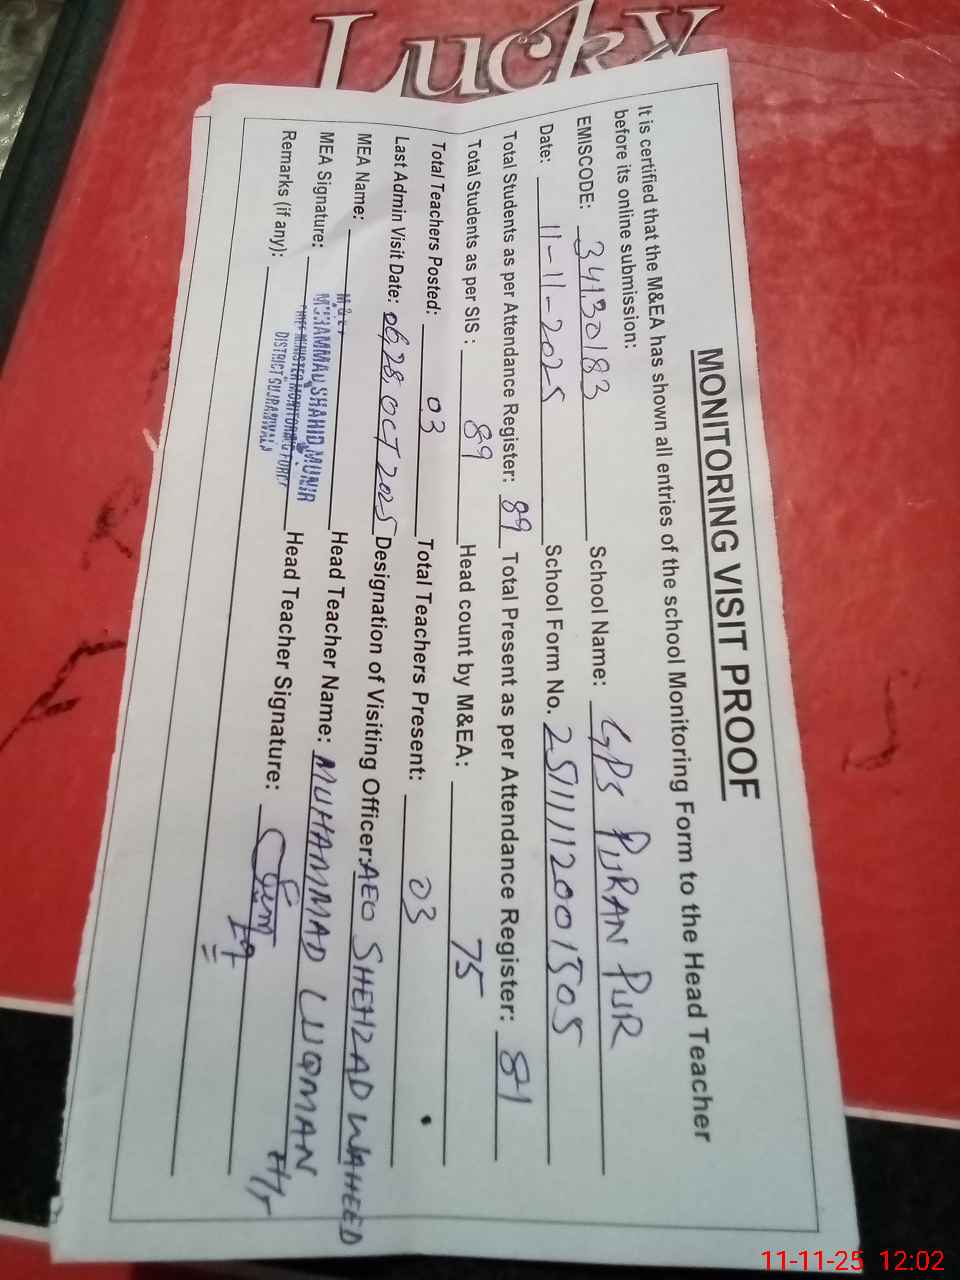 Lucky
MONITORING VISIT PROOF
It is certified that the M&EA has shown all entries of the school Monitoring Form to the Head Teacher
before its online submission:
EMISCODE: 34130183 School Name: GPS PURAN PUR
Date: 11-11-2025 School Form No. 25111112001505
Total Students as per Attendance Register: 89 Total Present as per Attendance Register: 81
Total Students as per SIS : 89 Head count by M&EA: 75
Total Teachers Posted: 03 Total Teachers Present: 03
Last Admin Visit Date: 06,28,OCT 2025 Designation of Visiting Officer: AEO SHEHZAD WAHEED
MEA Name: Head Teacher Name: MUHAMMAD LUQMAN
M&EA
MUHAMMAD SHAHID MUNIR
CHIEF MINISTER MONITORING FORCE
DISTRICT GUJRANWALA
MEA Signature: Head Teacher Signature:
Remarks (if any):
11-11-25 12:02